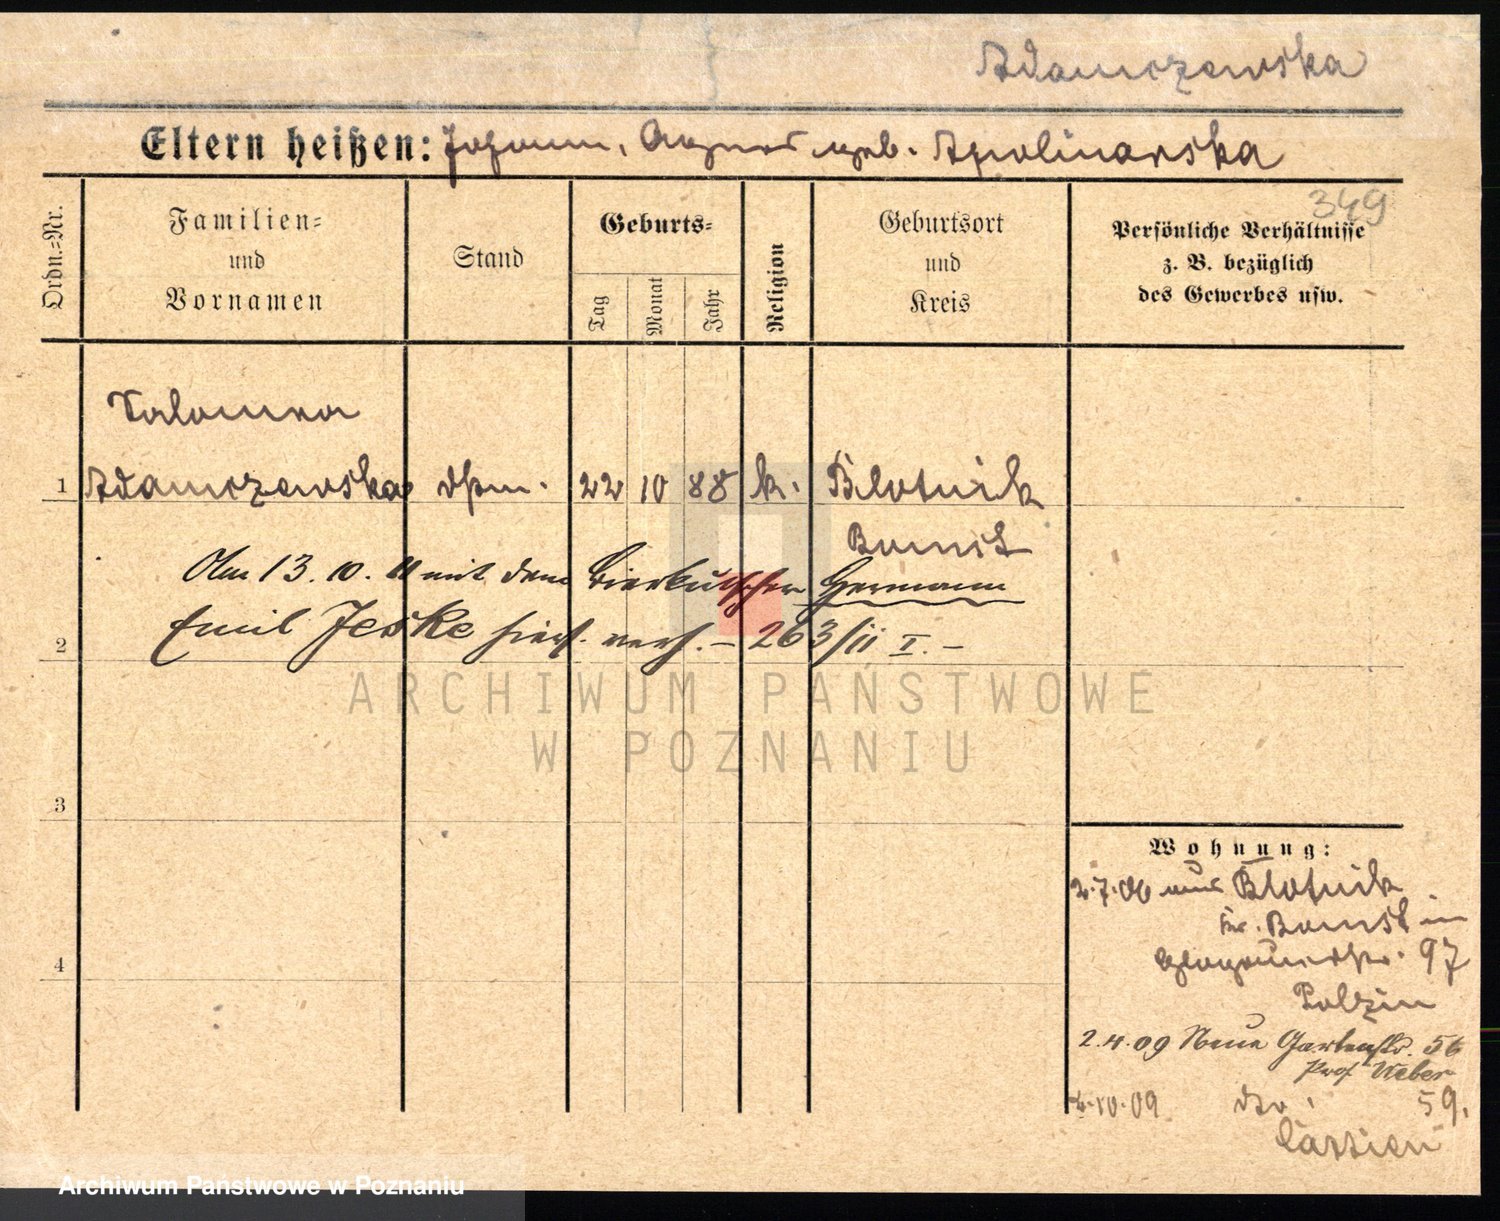 Adamczewska
Eltern heißen: Johann, Agnes geb. Apolinarska
349
Ordn.=Nr.
Familien=
und
Vornamen
Stand
Geburts=
Tag
Monat
Jahr
Religion
Geburtsort
und
Kreis
Persönliche Verhältnisse
z. B. bezüglich
des Gewerbes usw.
Salomea
1 Adamczewska 22 10 88 k. Blotnik
Bomst
Am 13. 10. 11 mit dem Bierkutscher Hermann
Emil Jeske hiers. verh. – 263/11 I. –
2
3
4
Wohnung:
2.7.06 aus Blotnik
Kr. Bomst in
Glogauerstr. 97
Polzin
2.4.09 Neue Gartenstr. 56
Prof Weber
4.10.09 dto. 59.
Cassien
ARCHIWUM PAŃSTWOWE
W POZNANIU
Archiwum Państwowe w Poznaniu